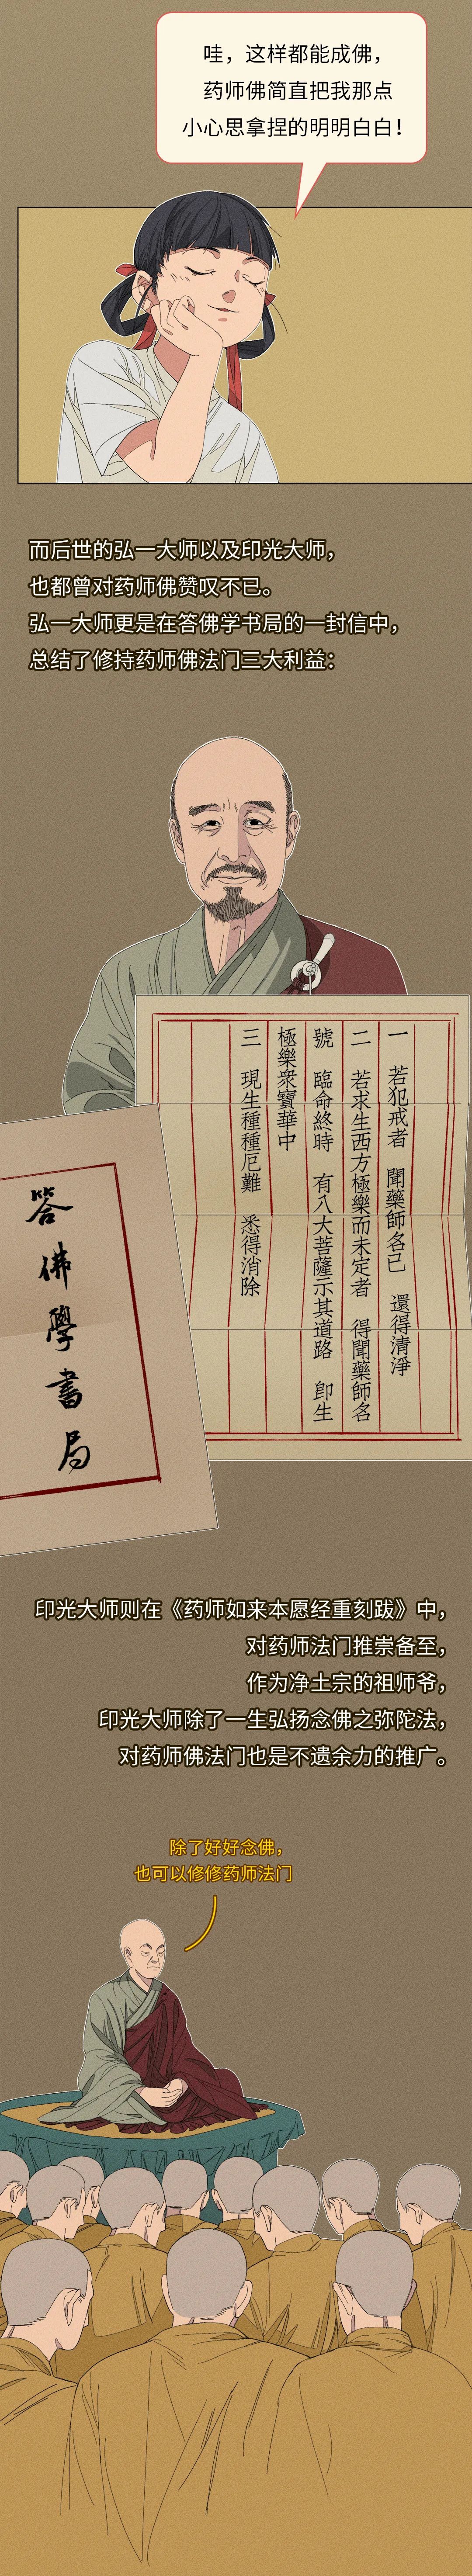 哇，这样都能成佛，
药师佛简直把我那点
小心思拿捏的明明白白！
而后世的弘一大师以及印光大师，
也都曾对药师佛赞叹不已。
弘一大师更是在答佛学书局的一封信中，
总结了修持药师佛法门三大利益：
一 若犯戒者 聞藥師名已 還得清淨
二 若求生西方極樂而未定者 得聞藥師名
號 臨命終時 有八大菩薩示其道路 卽生
極樂衆寶華中
三 現生種種厄難 悉得消除
答佛學書局
印光大师则在《药师如来本愿经重刻跋》中，
对药师法门推崇备至，
作为净土宗的祖师爷，
印光大师除了一生弘扬念佛之弥陀法，
对药师佛法门也是不遗余力的推广。
除了好好念佛，
也可以修修药师法门